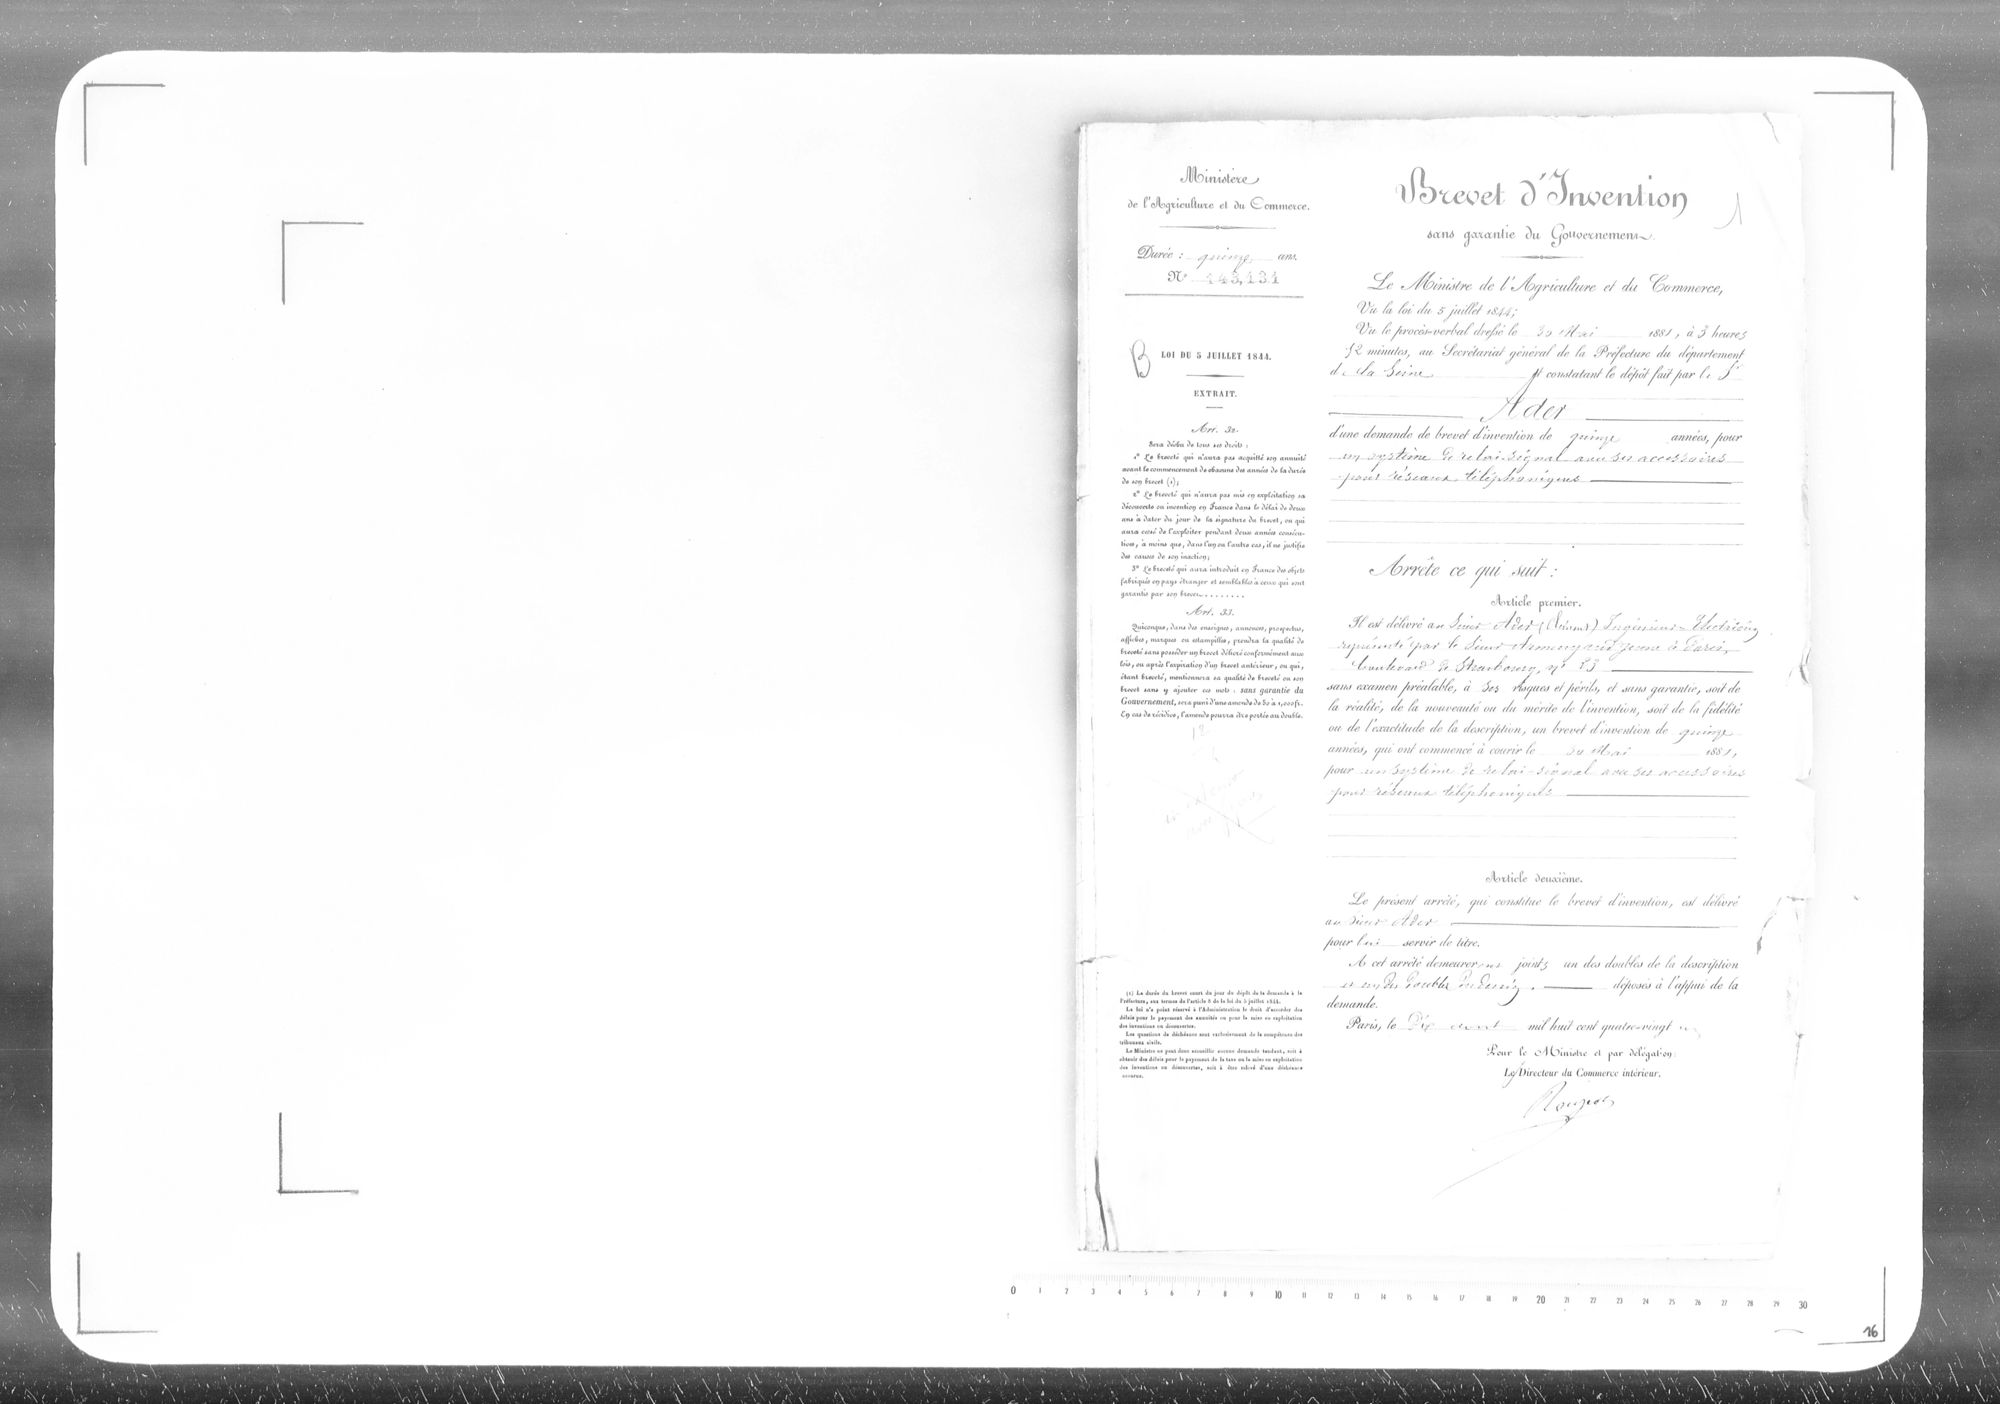 Ministère
de l'Agriculture et du Commerce.
Durée : quinze ans.
N° 143,131
B
LOI DU 5 JUILLET 1844.
EXTRAIT.
Art. 32.
Sera déchu de tous ses droits :
1° Le breveté qui n'aura pas acquitté son annuité
avant le commencement de chacune des années de la durée
de son brevet (1);
2° Le breveté qui n'aura pas mis en exploitation sa
découverte ou invention en France dans le délai de deux
ans à dater du jour de la signature du brevet, ou qui
aura cessé de l'exploiter pendant deux années consécu-
tives, à moins que, dans l'un ou l'autre cas, il ne justifie
des causes de son inaction;
3° Le breveté qui aura introduit en France des objets
fabriqués en pays étranger et semblables à ceux qui sont
garantis par son brevet.........
Art. 33.
Quiconque, dans des enseignes, annonces, prospectus,
affiches, marques ou estampilles, prendra la qualité de
breveté sans posséder un brevet délivré conformément aux
lois, ou après l'expiration d'un brevet antérieur, ou qui,
étant breveté, mentionnera sa qualité de breveté ou son
brevet sans y ajouter ces mots : sans garantie du
Gouvernement, sera puni d'une amende de 50 à 1,000 fr.
En cas de récidive, l'amende pourra être portée au double.
12
(1) La durée du brevet court du jour du dépôt de la demande à la
Préfecture, aux termes de l'article 8 de la loi du 5 juillet 1844.
La loi n'a point réservé à l'Administration le droit d'accorder des
délais pour le payement des annuités ou pour la mise en exploitation
des inventions ou découvertes.
Les questions de déchéance sont exclusivement de la compétence des
tribunaux civils.
Le Ministre ne peut donc accueillir aucune demande tendant, soit à
obtenir des délais pour le payement de la taxe ou la mise en exploitation
des inventions ou découvertes, soit à être relevé d'une déchéance
encourue.
Brevet d'Invention
1
sans garantie du Gouvernement.
Le Ministre de l'Agriculture et du Commerce,
Vu la loi du 5 juillet 1844;
Vu le procès-verbal dressé le 30 Mai 1881, à 3 heures
12 minutes, au Secrétariat général de la Préfecture du département
de la Seine et constatant le dépôt fait par le Sr
Ader
d'une demande de brevet d'invention de quinze années, pour
un système de relai-signal avec ses accessoires
pour réseaux téléphoniques
Arrête ce qui suit :
Article premier.
Il est délivré au Sieur Ader (Clément) Ingénieur-Electricien
représenté par le Sieur Armengaud jeune à Paris,
boulevard de Strasbourg, n° 23
sans examen préalable, à ses risques et périls, et sans garantie, soit de
la réalité, de la nouveauté ou du mérite de l'invention, soit de la fidélité
ou de l'exactitude de la description, un brevet d'invention de quinze
années, qui ont commencé à courir le 30 Mai 1881,
pour un système de relai-signal avec ses accessoires
pour réseaux téléphoniques
Article deuxième.
Le présent arrêté, qui constitue le brevet d'invention, est délivré
au Sieur Ader
pour lui servir de titre.
A cet arrêté demeureront joints un des doubles de la description
et un des doubles du dessin. déposés à l'appui de la
demande.
Paris, le Dix août mil huit cent quatre-vingt un
Pour le Ministre et par délégation:
Le Directeur du Commerce intérieur.
0 1 2 3 4 5 6 7 8 9 10 11 12 13 14 15 16 17 18 19 20 21 22 23 24 25 26 27 28 29 30
16